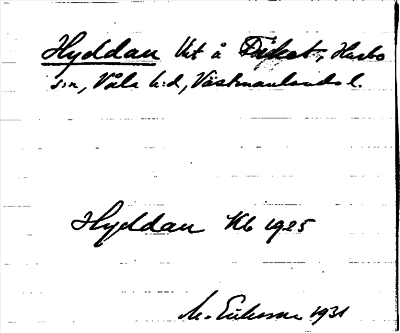 Hyddan Vst å Fäket, Harbo
s:n, Våla h:d, Västmanlands l.
Hyddan Kb 1925
M. Eriksson 1931